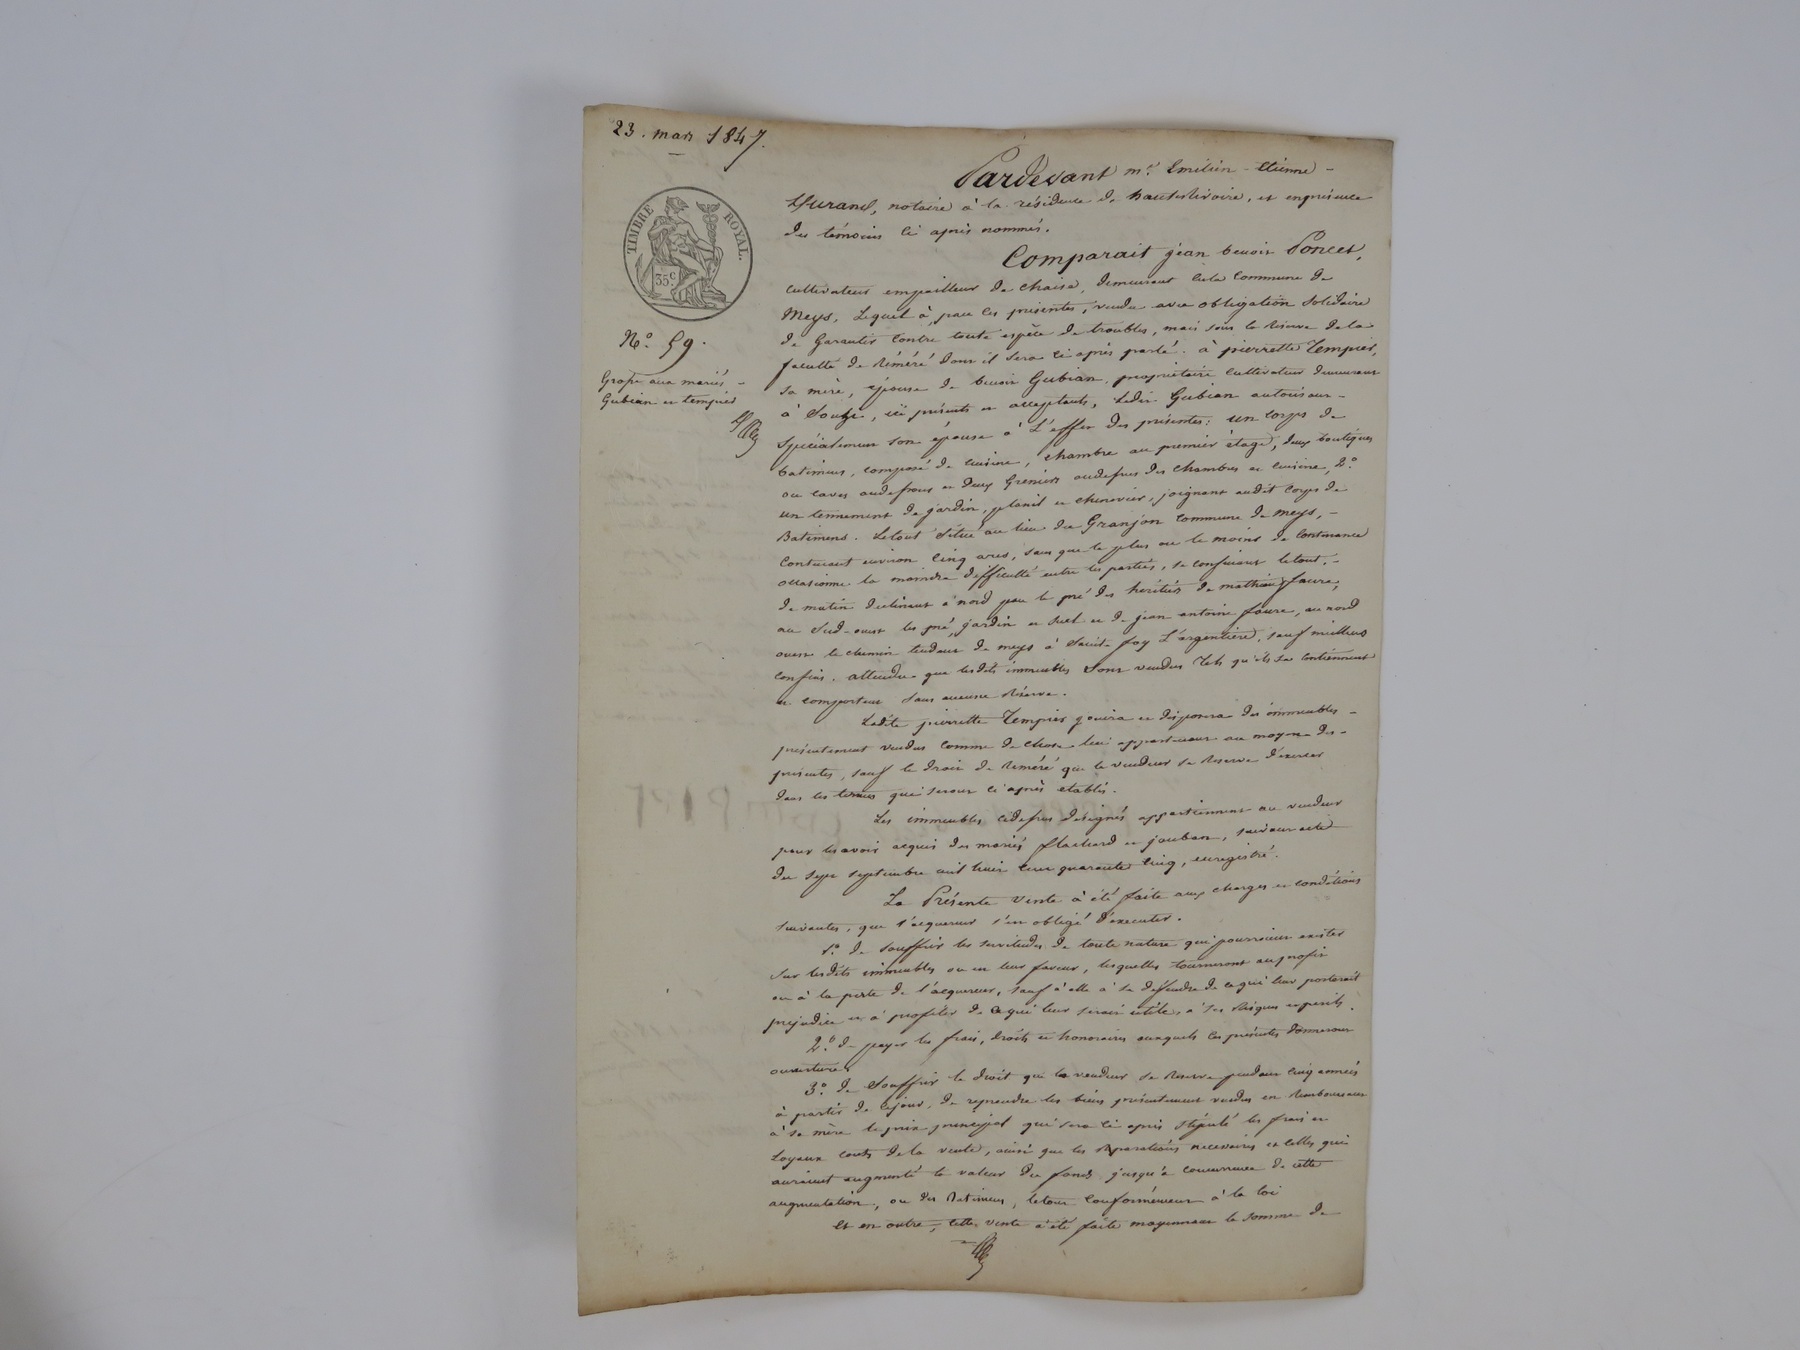 23. mars 1847.
TIMBRE ROYAL.
35 c
N.º 59.
Grosse aux mariés
Gubian et Tempier
Pardevant m.e Emilien-Etienne
Durand, notaire à la résidence de hauterivoire, et en présence
des témoins ci après nommés.
Comparait jean benoit Poncet,
cultivateur empailleur de chaise, demeurant en la Commune de
Meys, Lequel à, par les présentes, vendu avec obligation solidaire
de Garantir contre toute espèce de troubles, mais sous la Réserve de la
faculté de Réméré dont il sera ci après parlé. à pierrette Tempier,
sa mère, épouse de benoit Gubian, propriétaire cultivateur demeurant
à Souzy, ici présents et acceptants, Ledit Gubian autorisant
spécialement son épouse à L'effet des présentes; un corps de
batimens, composé de cuisine, chambre au premier étage, deux boutiques
ou caves audessous et deux Greniers audessus des chambres et cuisine, 2.º
un tennement de jardin, planil et chenevier, joignant audit corps de
Batimens. Le tout situé au lieu du Granjon commune de meys,
Contenant environ cinq ares, sans que le plus ou le moins de contenance
occasionne la moindre difficulté entre les parties, se confinant le tout,
de matin declinant à nord par le pré des héritiers de mathieu faure,
au Sud-ouest les pré, jardin et suel et de jean antoine faure, au nord
ouest le chemin tendant de meys à Sainte foy L'argentière, sauf meilleurs
confins. attendu que lesdits immeubles sont vendus Tels qu'ils se contiennent
et comportent sans aucune Réserve.
Ladite pierrette Tempier jouira et disposera des immeubles
présentement vendus comme de chose lui appartenant au moyen des
présentes, sauf le droit de Réméré que le vendeur se Réserve d'exercer
dans les termes qui seront ci après établis.
Les immeubles cidessus désignés appartiennent au vendeur
pour les avoir acquis des mariés flachard et jouban, suivant acte
du sept septembre mil huit cent quarante cinq, enregistré.
La Présente vente à été faite aux charges et conditions
suivantes, que l'acquereur s'est obligé d'executer.
1.º de souffrir les servitudes de toute nature qui pourraient exister
sur lesdits immeubles ou en leur faveur, lesquelles tourneront au profit
ou à la perte de l'acquereur, sauf à elle à se deffendre de ce qui leur porterait
prejudice et à profiter de ce qui leur serait utile, à ses Risques et perils.
2.º de payer les frais, droits et honoraires auxquels les présentes donneront
ouverture.
3.º de Souffrir le droit que le vendeur se Réserve pendant cinq années
à partir de ce jour, de reprendre les biens présentement vendus en Remboursant
à sa mère le prix principal qui sera ci après stipulé les frais et
Loyaux couts de la vente, ainsi que les Réparations necessaires et celles qui
auraient augmenté la valeur du fonds jusqu'à concurrence de cette
augmentation, ou des Batimens, le tout conformément à la loi
Et en outre, cette vente à été faite moyennant la somme de